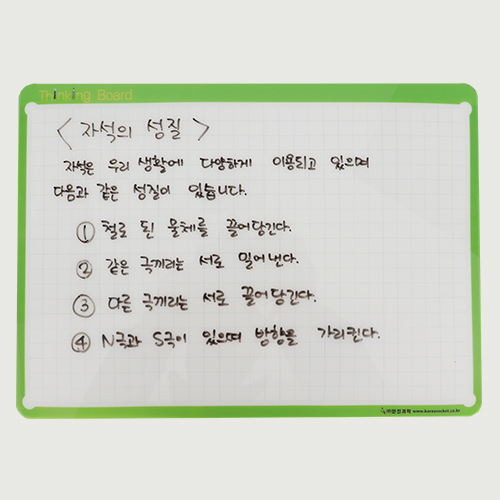 Thinking Board
< 자석의 성질 >
자석은 우리 생활에 다양하게 이용되고 있으며
다음과 같은 성질이 있습니다.
① 철로 된 물체를 끌어당긴다.
② 같은 극끼리는 서로 밀어낸다.
③ 다른 극끼리는 서로 끌어당긴다.
④ N극과 S극이 있으며 방향을 가리킨다.
www.karearocket.co.kr